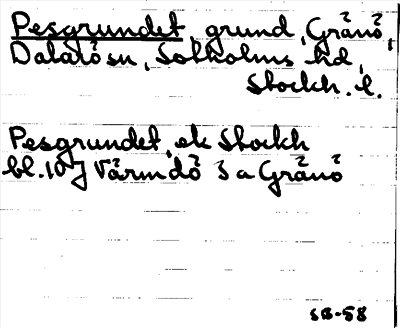 Pesgrundet, grund, Gränö,
Dalarö sn, Sotholms hd,
Stockh. l.
Pesgrundet, ek Stockh
bl. 107 Värmdö 3 a Gränö
SB-58